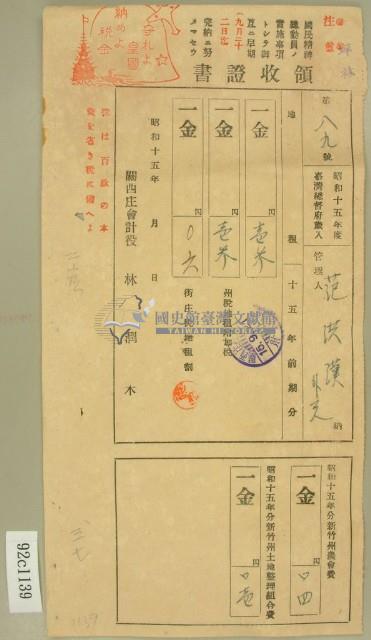 注意
國民精神
總動員ノ
實施事項
トシテ
直ニ早期
完納ニ努
メマセウ
領收證書
納めよ
皇國
税金
税は百政の本
費を省き税に備へよ
第八九號
昭和十五年度
臺灣總督府歲入
管理人
范洪
外
納
地租
十五年前期分
一金
円
一金
円
一金
円
〇六
州稅地租附加稅
街庄稅地租割
昭和十五年 月 日
關西庄會計役 林潤木
昭和十五年分新竹州農會費
一金
円
〇四
昭和十五年分新竹州土地整理組合費
一金
円
〇壱
國史館臺灣文獻館
TAIWAN HISTORICA
92c1139
1139